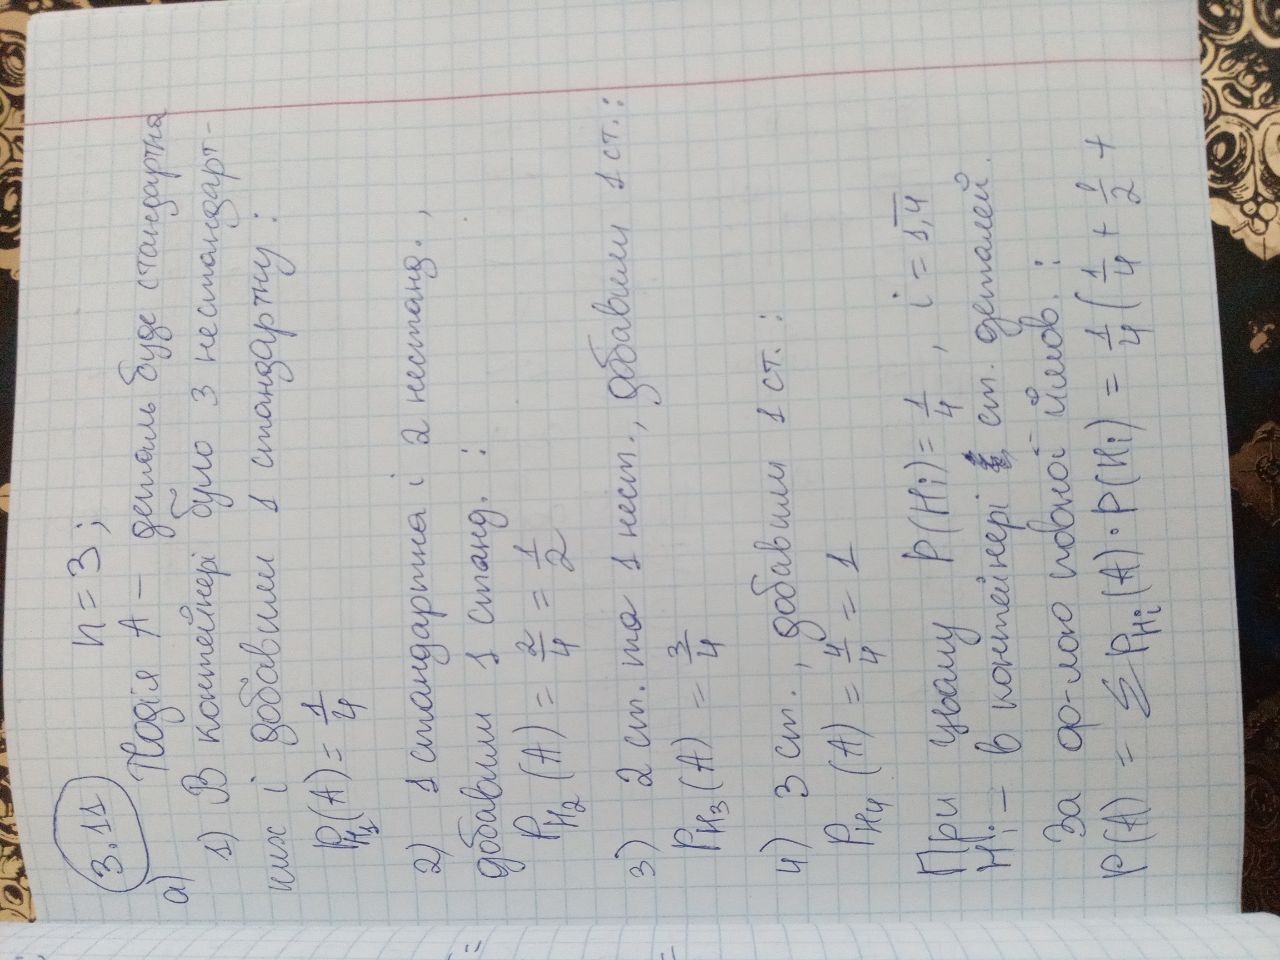 3.11 n = 3;
а) Подія A – деталь буде стандартна
1) В контейнері було 3 нестандарт-
них і добавили 1 стандартну :
P_H₁(A) = 1/4
2) 1 стандартна і 2 нестанд. ,
добавили 1 станд. :
P_H₂(A) = 2/4 = 1/2
3) 2 ст. та 1 нест., добавили 1 ст. :
P_H₃(A) = 3/4
4) 3 ст. , добавили 1 ст. :
P_H₄(A) = 4/4 = 1
При цьому P(Hi) = 1/4 , i = 1,4
Hi – в контейнері ст. деталей.
За ф-лою повної ймов. :
P(A) = ΣP_Hi(A)·P(Hi) = 1/4 (1/4 + 1/2 +